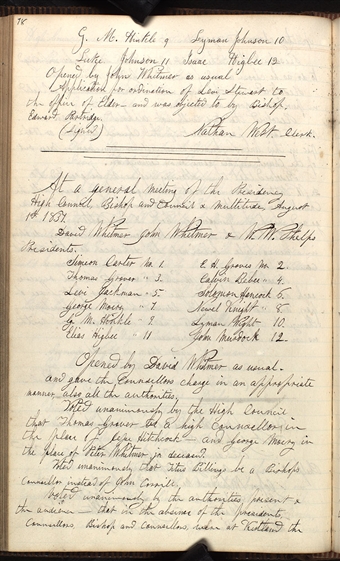 78
G. M. Hinkle 9 Lyman Johnson 10
Luke Johnson 11 Isaac Higbee 12
Opened by John Whitmer as usual
Application for ordination of Levi Stewart to
the office of Elder — and was objected to by Bishop,
Edward Partridge.
(Signed) Nathan West. Clerk.
At a general meeting of the Presidency
High Council, Bishop and Council & multitude, August
1st 1837.
David Whitmer John Whitmer & W. W. Phelps
Presidents.
Simeon Carter No. 1. E. H. Groves No. 2.
Thomas Grover " 3. Calvin Bebee " 4.
Levi Jackman " 5. Solomon Hancock 6.
George Morey " 7 Newel Knight " 8.
G. M. Hinkle " 9 Lyman Wight 10.
Elias Higbee " 11 John Murdock 12.
Opened by David Whitmer as usual.
and gave the Counsellors charge in an appropriate
manner, also all the authorities,
Voted unanimously by the High Council
that Thomas Grover be a high Counsellor in
the place of Jesse Hitchcock — and George Morey in
the place of Peter Whitmer jr deceased.
Voted unanimously that Titus Billings be a Bishops
Counsellor instead of John Corrill,
Voted unanimously by the authorities, present &
the audience — that in the absence of the presidents,
Counsellors, Bishop and Counsellors, were at Kirtland the